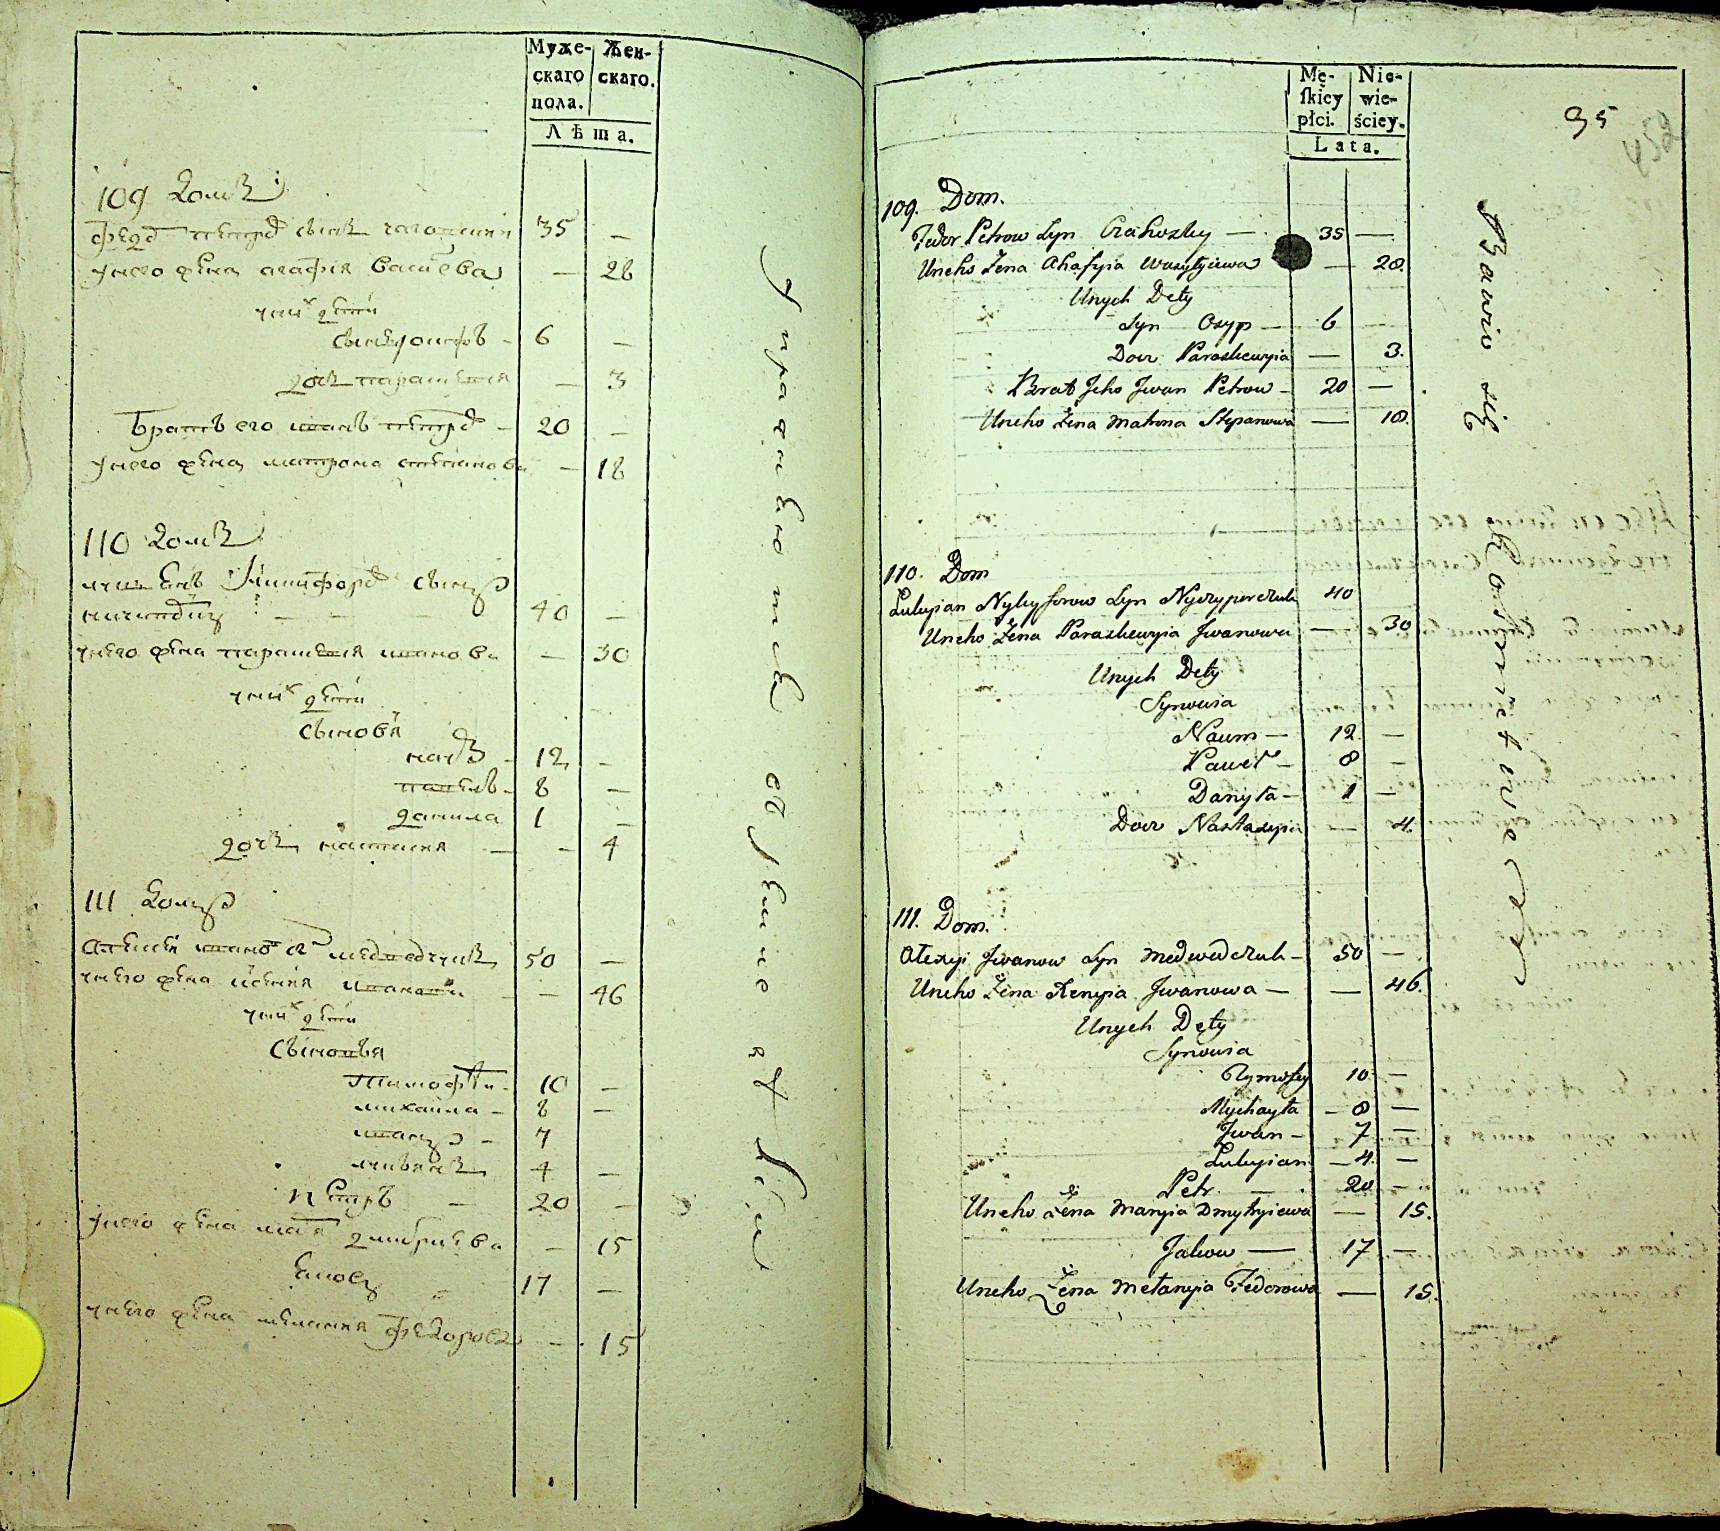 Муже-
скаго
пола.
Жен-
скаго.
Лѣта.
109 домъ
Федоръ петровъ сынъ 35 —
у него жена агафія василева — 28
у них дѣти
сынъ осипъ - 6 —
дочь парасковия — 3
Братъ его иванъ петровъ - 20 —
у него жена матрона степанова — 18
110 домъ
лукьянъ никифоровъ сынъ
40 —
у него жена парасковия иванова — 30
у них дѣти
сыновья
наумъ - 12 -
павелъ - 8 —
данила 1 —
дочь настасия — - 4
111 домъ
алексей ивановъ сынъ медведчукъ 50 —
у него жена ксения иванова — 46
у них дѣти
сыновья
Тимофей - 10 —
михаила - 8 —
иванъ - 7
лукьянъ 4 —
петръ — 20 —
у него жена мария дмитриева - 15
яковъ 17 —
у него жена мелания федорова — 15
Mę-
ſkiey
płci.
Nie-
wie-
ściey.
Lata.
95
109. Dom.
Fedor Petrow Syn — 35 —
Uneho Żena Ahafyia Wasylyiewa — 28.
Unych Dety
Syn Osyp — 6
Docz Paraskewyia — 3.
Brat Jeho Jwan Petrow - 20 —
Uneho Żena Matrona Stepanowa — 18.
110. Dom
Lukyian Nykyforow Syn Nyczyporczuk 40
Uneho Żena Paraskewyia Jwanowa — 30
Unych Dety
Synowia
Naum — 12 —
Paweł — 8 —
Danyła — 1 —
Docz Nastasyia — 4.
111. Dom.
Ołexyi Jwanow Syn Medwedczuk - 50 —
Uneho Żena Xenyia Jwanowa — — 46.
Unych Dety
Synowia
Tymofey 10 —
Mychayła - 8 —
Jwan - 7 —
Lukyian - 4. —
Petr — 20 -
Uneho Żena Maryia Dmytryiewa — 15.
Jakow — 17 —
Uneho Żena Mełanyia Fedorowa — 15.